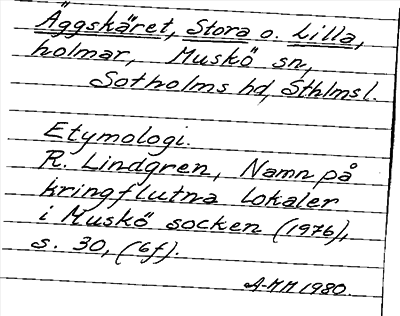 Äggskäret, Stora o. Lilla,
holmar, Muskö sn,
Sotholms hd, Sthlmsl.
Etymologi.
R. Lindgren, Namn på
kringflutna lokaler
i Muskö socken (1976),
s. 30, (6f).
A-MH 1980.